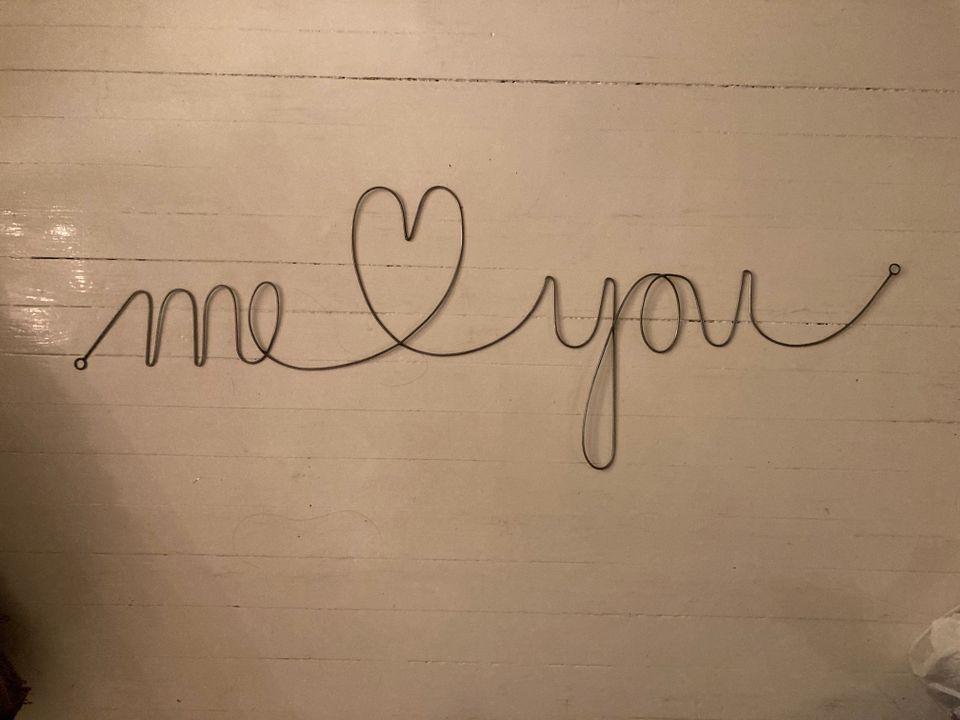 me ♡ you